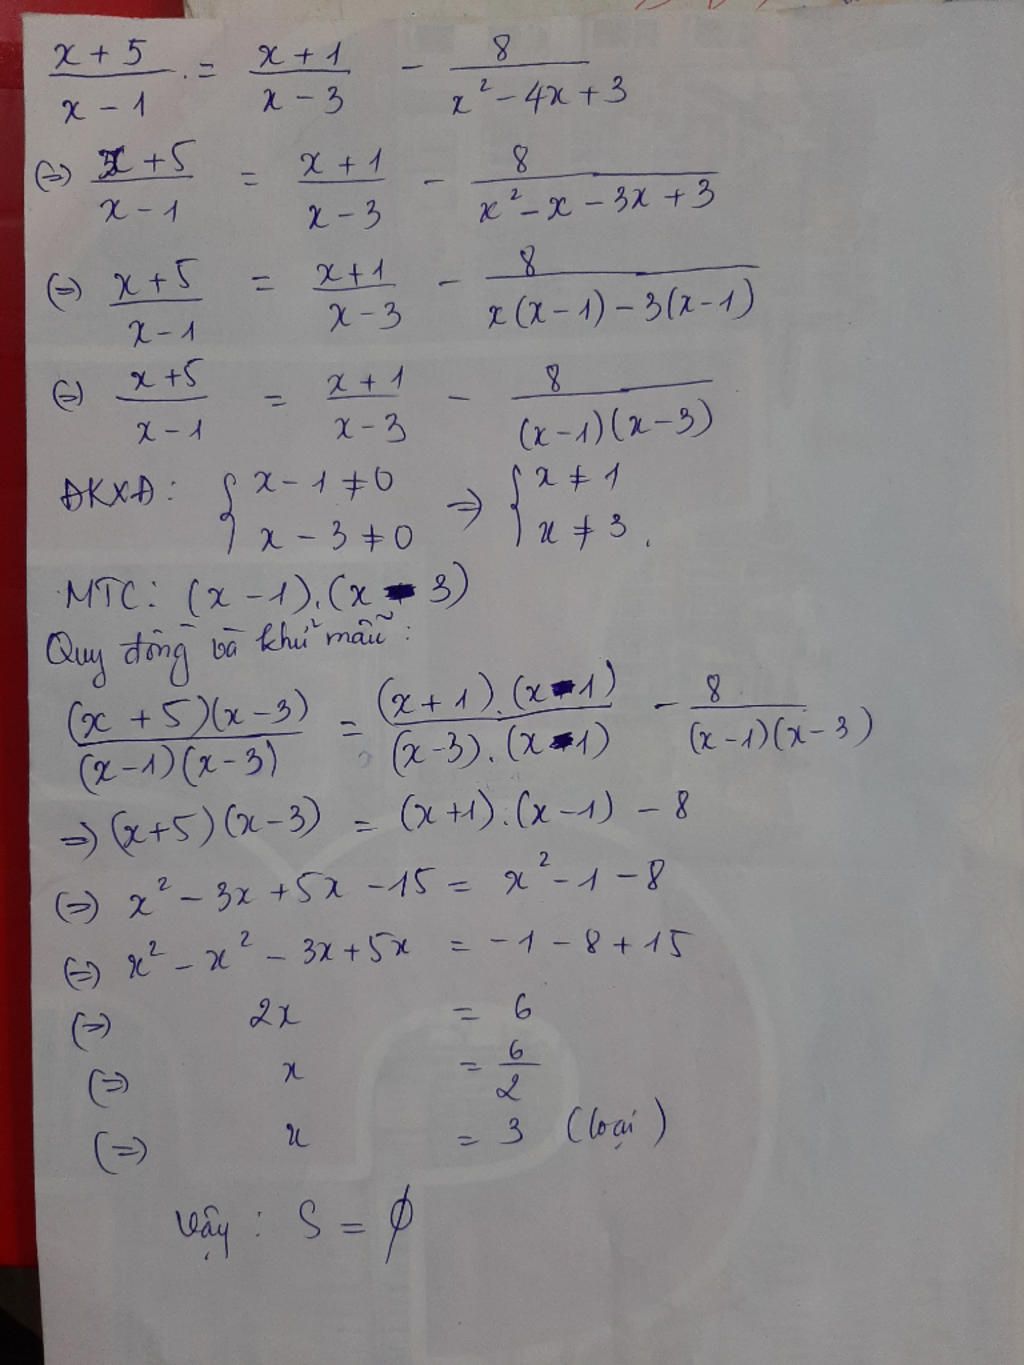 x + 5 / x - 1 = x + 1 / x - 3 - 8 / x² - 4x + 3
(=) x + 5 / x - 1 = x + 1 / x - 3 - 8 / x² - x - 3x + 3
(=) x + 5 / x - 1 = x + 1 / x - 3 - 8 / x(x - 1) - 3(x - 1)
(=) x + 5 / x - 1 = x + 1 / x - 3 - 8 / (x - 1)(x - 3)
ĐKXĐ: { x - 1 ≠ 0 => { x ≠ 1
x - 3 ≠ 0 x ≠ 3.
MTC: (x - 1).(x - 3)
Quy đồng và khử mẫu:
(x + 5)(x - 3) / (x - 1)(x - 3) = (x + 1).(x - 1) / (x - 3).(x - 1) - 8 / (x - 1)(x - 3)
=> (x + 5)(x - 3) = (x + 1).(x - 1) - 8
(=) x² - 3x + 5x - 15 = x² - 1 - 8
(=) x² - x² - 3x + 5x = -1 - 8 + 15
(=) 2x = 6
(=) x = 6 / 2
(=) x = 3 (loại)
Vậy: S = ∅